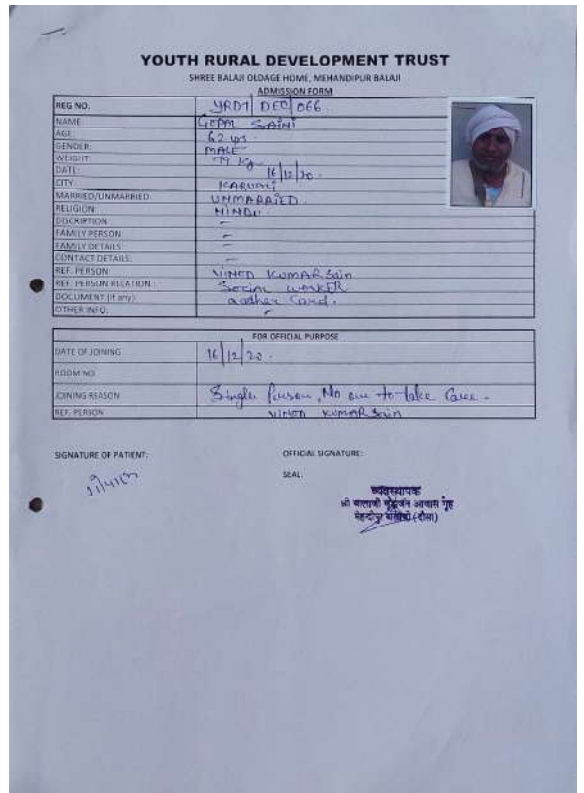 YOUTH RURAL DEVELOPMENT TRUST
SHREE BALAJI OLDAGE HOME, MEHANDIPUR BALAJI
ADMISSION FORM
REG NO. YRDT/DEC/066
NAME: GOPAL SAINI
AGE: 62 yrs.
GENDER: MALE
WEIGHT: 79 Kg
DATE: 16/12/20.
CITY: KARAULI
MARRIED/UNMARRIED: UNMARRIED.
RELIGION: HINDU.
DISCRIPTION: –
FAMILY PERSON: –
FAMILY DETAILS: –
CONTACT DETAILS: –
REF. PERSON VINOD KUMAR Sain
REF. PERSON RELATION: Social WORKER
DOCUMENT (If any): aadhar Card.
OTHER INFO:
FOR OFFICIAL PURPOSE
DATE OF JOINING 16/12/20.
ROOM NO
JOINING REASON Single Person, No one to take Care.
REF. PERSON VINOD KUMAR Sain
SIGNATURE OF PATIENT: OFFICIAL SIGNATURE:
गोपाल SEAL:
व्यवस्थापक
श्री बालाजी वृद्धजन आवास गृह
मेहन्दीपुर बालाजी (दौसा)